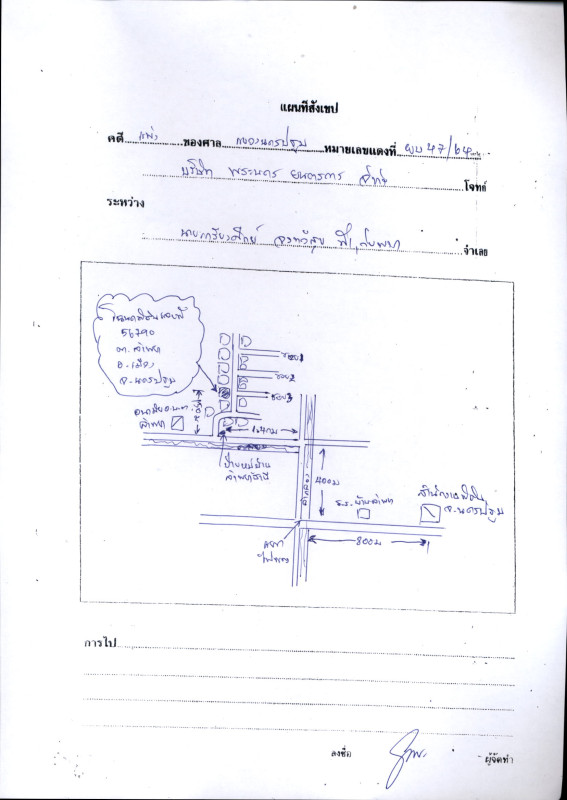 แผนที่สังเขป
คดี แพ่ง ของศาล แขวงนครปฐม หมายเลขแดงที่ ผบ 47/64
บริษัท พระนคร ยนตรการ จำกัด โจทก์
ระหว่าง
จำเลย
โฉนดที่ดินเลขที่
56790
ต.ลำพยา
อ.เมือง
จ.นครปฐม
ซอย 1
ซอย 2
ซอย 3
ลำพยา
1.4 กม
ป้ายหมู่บ้าน
ลำพยาธานี
400 ม
ร.ร.บ้านลำพยา
สำนักงานที่ดิน
จ.นครปฐม
แยก
ไฟแดง
800 ม
การไป
ลงชื่อ ผู้จัดทำ